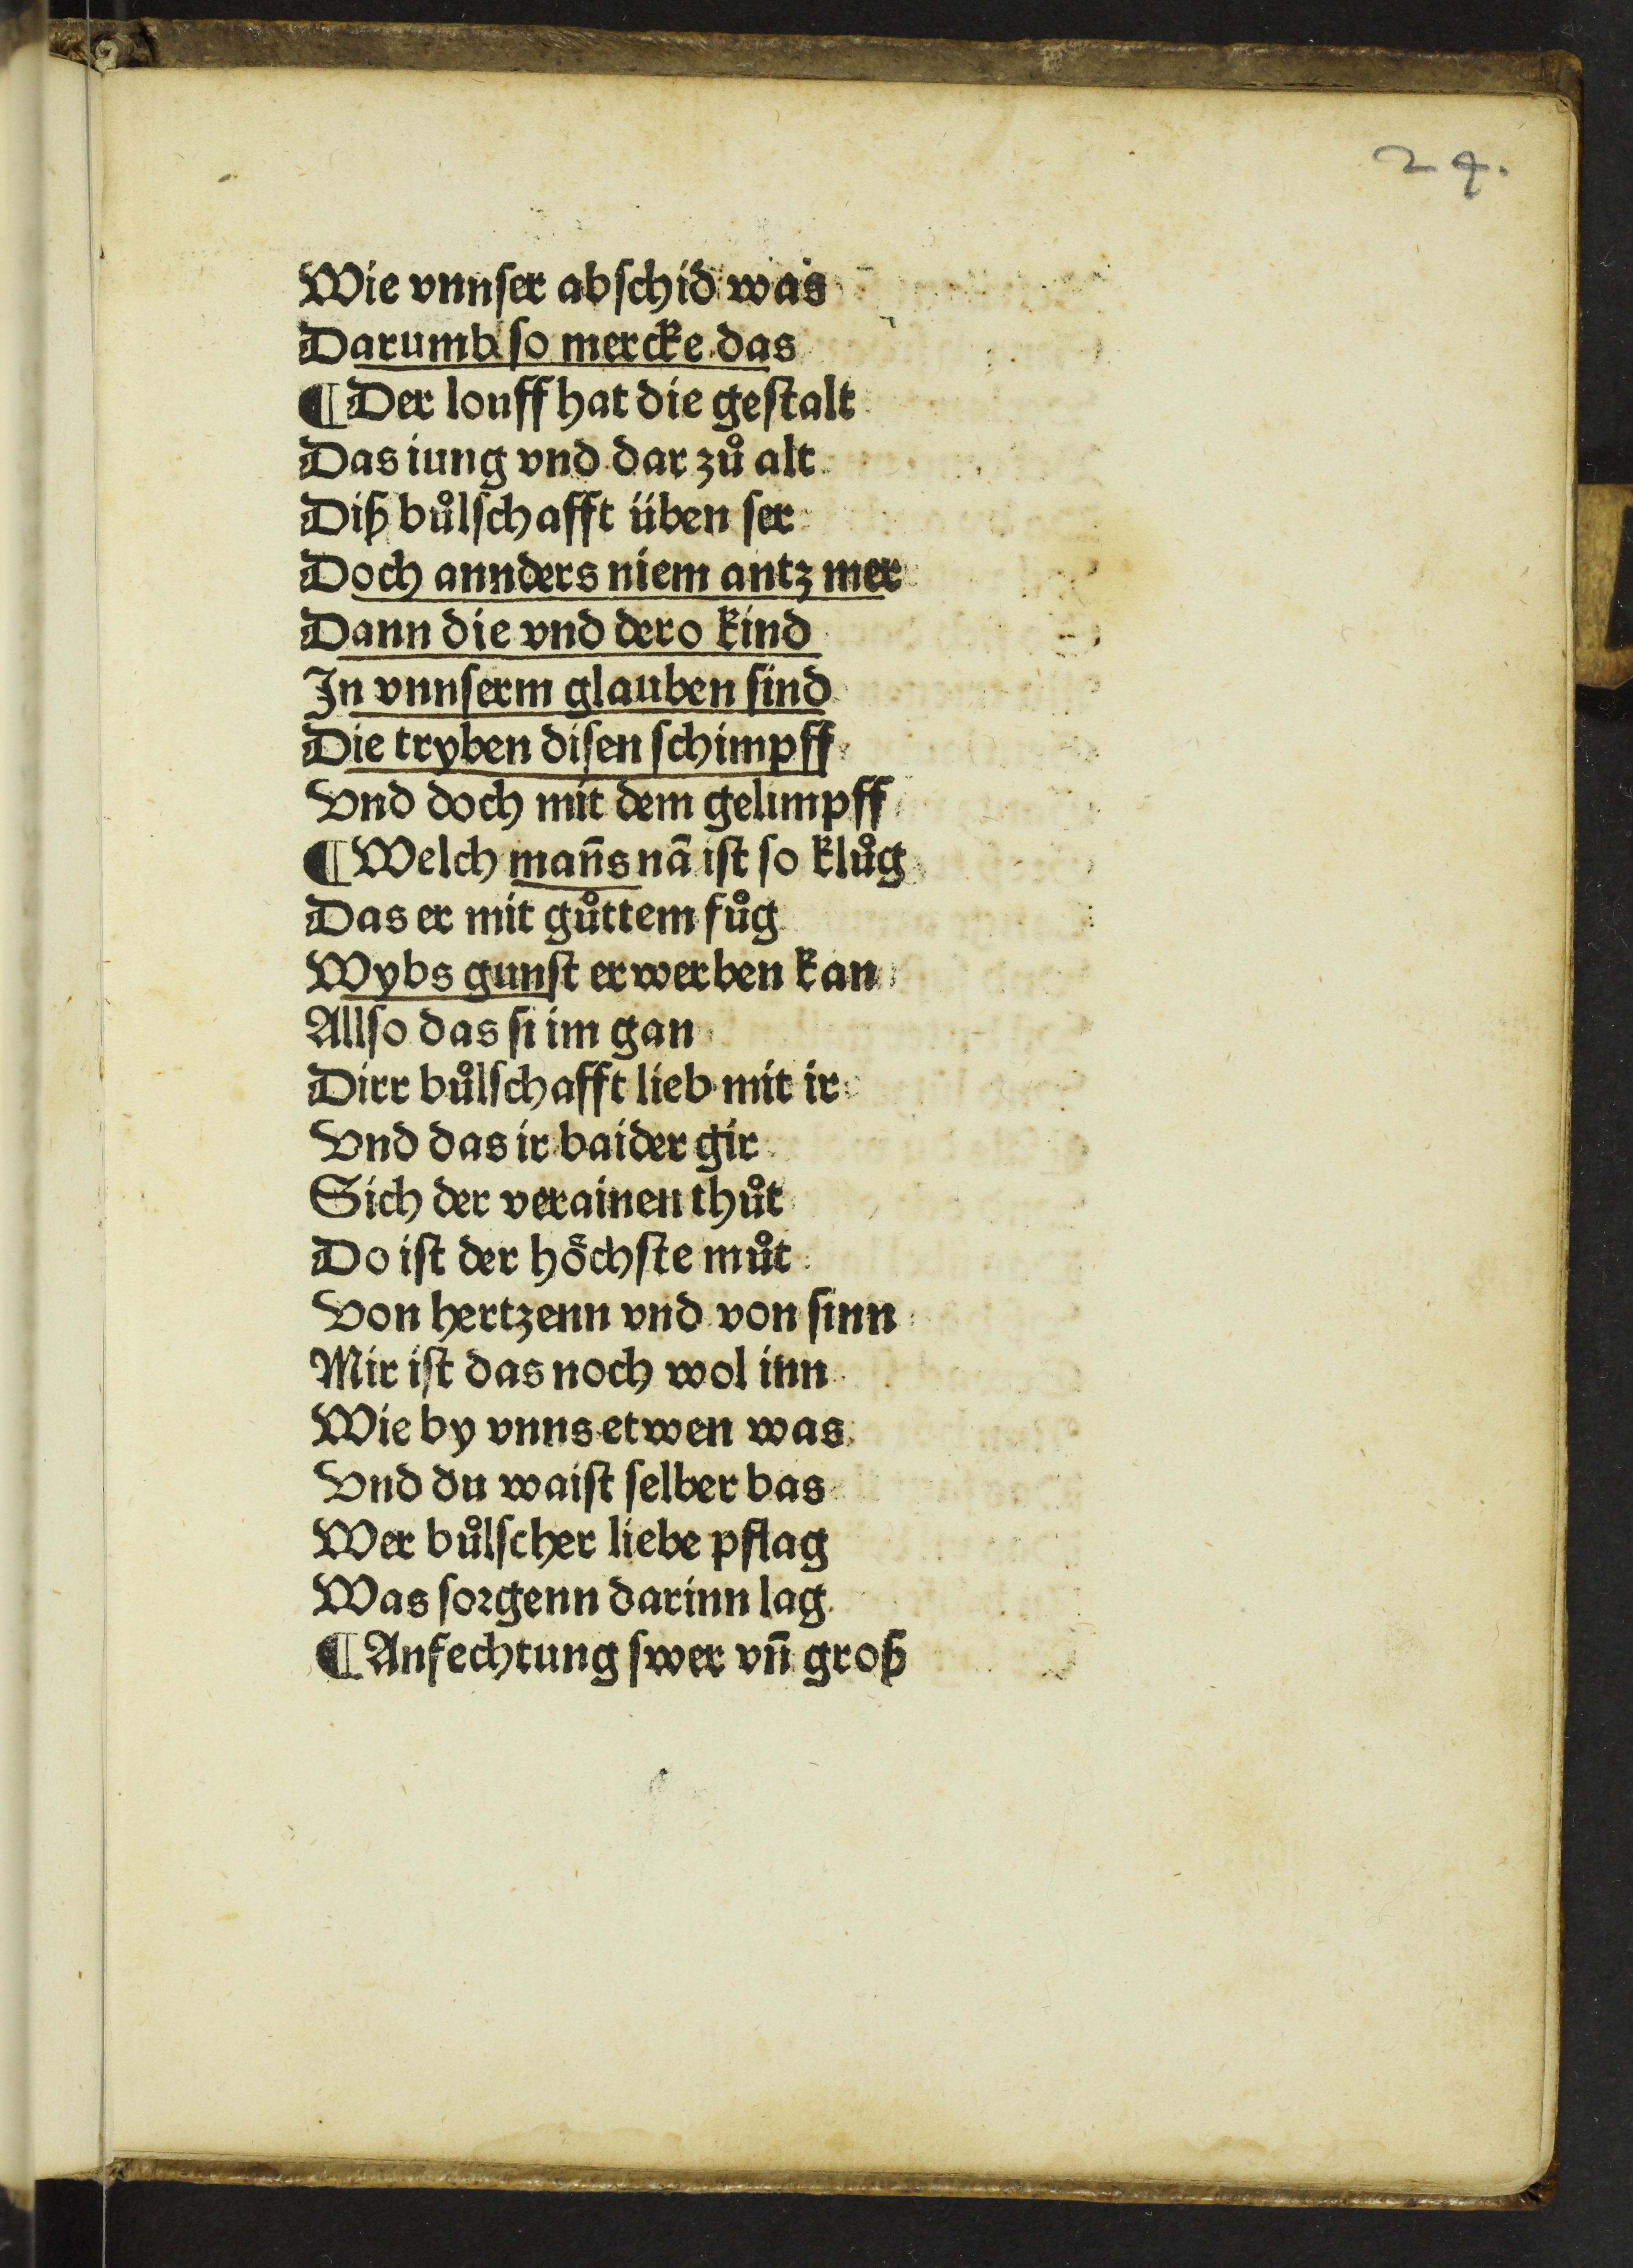 24.
Wie vnnſer abſchid was
Darumb ſo mercke das
¶ Der louff hat die geſtalt
Das iung vnd dar zů alt
Diß bůlſchafft üben ſer
Doch annders niem antz mer
Dann die vnd dero kind
In vnnſerm glauben ſind
Die tryben diſen ſchimpff
Vnd doch mit dem gelimpff
¶ Welch man̄s nā iſt ſo klůg
Das er mit gůttem fůg
Wybs gunſt erwerben kan
Allſo das ſi im gan
Dirr bůlſchafft lieb mit ir
Vnd das ir baider gir
Sich der verainen thůt
Do iſt der hoͤchſte můt
Von hertzenn vnd von ſinn
Mir iſt das noch wol inn
Wie by vnns etwen was
Vnd du waiſt ſelber bas
Wer bůlſcher liebe pflag
Was ſorgenn darinn lag
¶ Anfechtung ſwer vn̄ groß